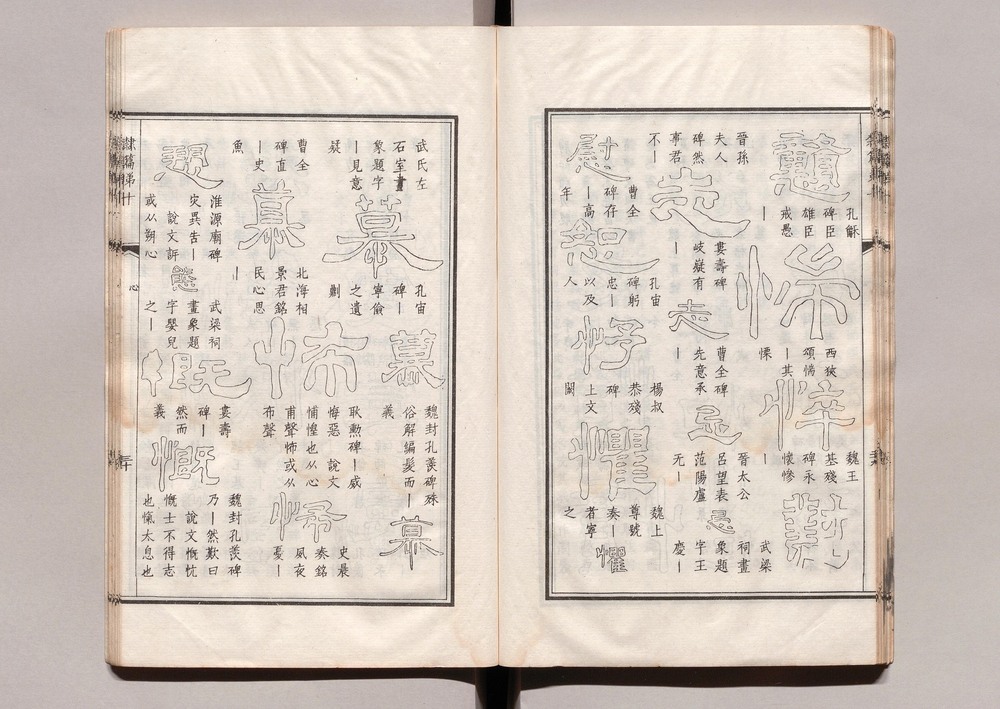 戇
孔龢
碑臣
雄臣
戒愚
｜
惴
西狹
頌惴
｜其
慄
悴
魏王
基殘
碑永
懷慘
｜
懟
晉孫
夫人
碑然
事君
不｜
志
婁壽碑
岐嶷有
｜
志
曹全碑
先意承
｜
忌
晉太公
呂望表
范陽盧
无｜
忌
武梁
祠畫
象題
字王
慶｜
曹全
碑存
｜高
年
恕
孔宙
碑躬
忠｜
以及
人
楊叔
恭殘
碑｜
上文
闕
懼
魏上
尊號
奏｜
者寧
之
懼
武氏左
石室畫
象題字
｜見意
疑
慕
孔宙
碑｜
寧儉
之遺
慕
魏封孔羨碑殊
俗解編髮而｜
義
慕
曹全
碑直
｜史
魚
慕
北海相
景君銘
民心思
｜
怖
耿勳碑｜威
悔惡　說文
悑惶也从心
甫聲怖或从
布聲
史晨
奏銘
夙夜
憂｜
愬
淮源廟碑
災異告｜
說文訴
或从朔心
武梁祠
畫象題
字嬰兒
之｜
慨
婁壽
碑｜
然而
義
慨
魏封孔羨碑
乃｜然歎曰
說文慨忼
慨士不得志
也愾太息也
隸篇弟十
心
三十